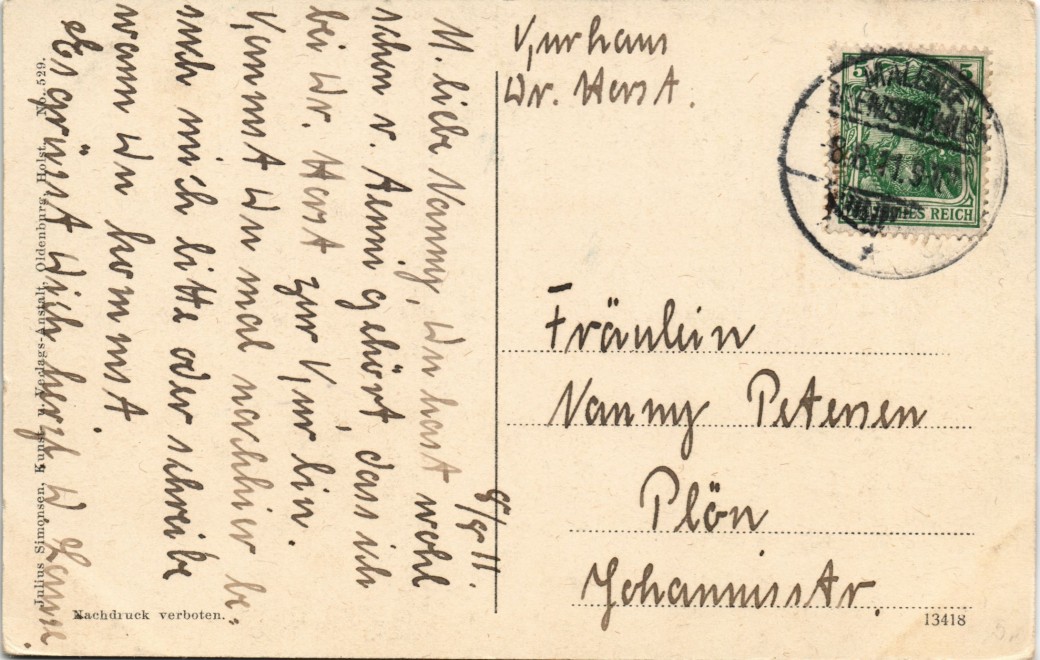 Kurhaus
Dr. Horst.
8/8 11.
M. liebe Nanny, Du hast wohl
schon v. Aenni gehört, dass ich
bei Dr. Horst zur Kur bin.
Kommst Du mal nachhier be-
such mich bitte oder schreibe
wann Du kommst.
Es grüsst Dich herzl D
Fräulein
Nanny Petersen
Plön
Johannisstr.
MALENTE
8.8.11.9-10
5 5
DEUTSCHES REICH
Julius Simonsen, Kunst- u. Verlags-Anstalt, Oldenburg, Holst. No. 529.
Nachdruck verboten.
13418